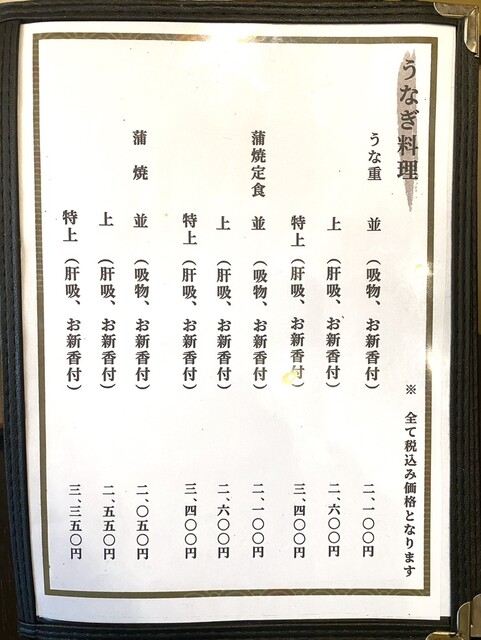 うなぎ料理
※ 全て税込み価格となります
うな重 並 (吸物、お新香付) 二、一〇〇円
上 (肝吸、お新香付) 二、六〇〇円
特上 (肝吸、お新香付) 三、四〇〇円
蒲焼定食 並 (吸物、お新香付) 二、一〇〇円
上 (肝吸、お新香付) 二、六〇〇円
特上 (肝吸、お新香付) 三、四〇〇円
蒲焼 並 (吸物、お新香付) 二、〇五〇円
上 (肝吸、お新香付) 二、五五〇円
特上 (肝吸、お新香付) 三、三五〇円